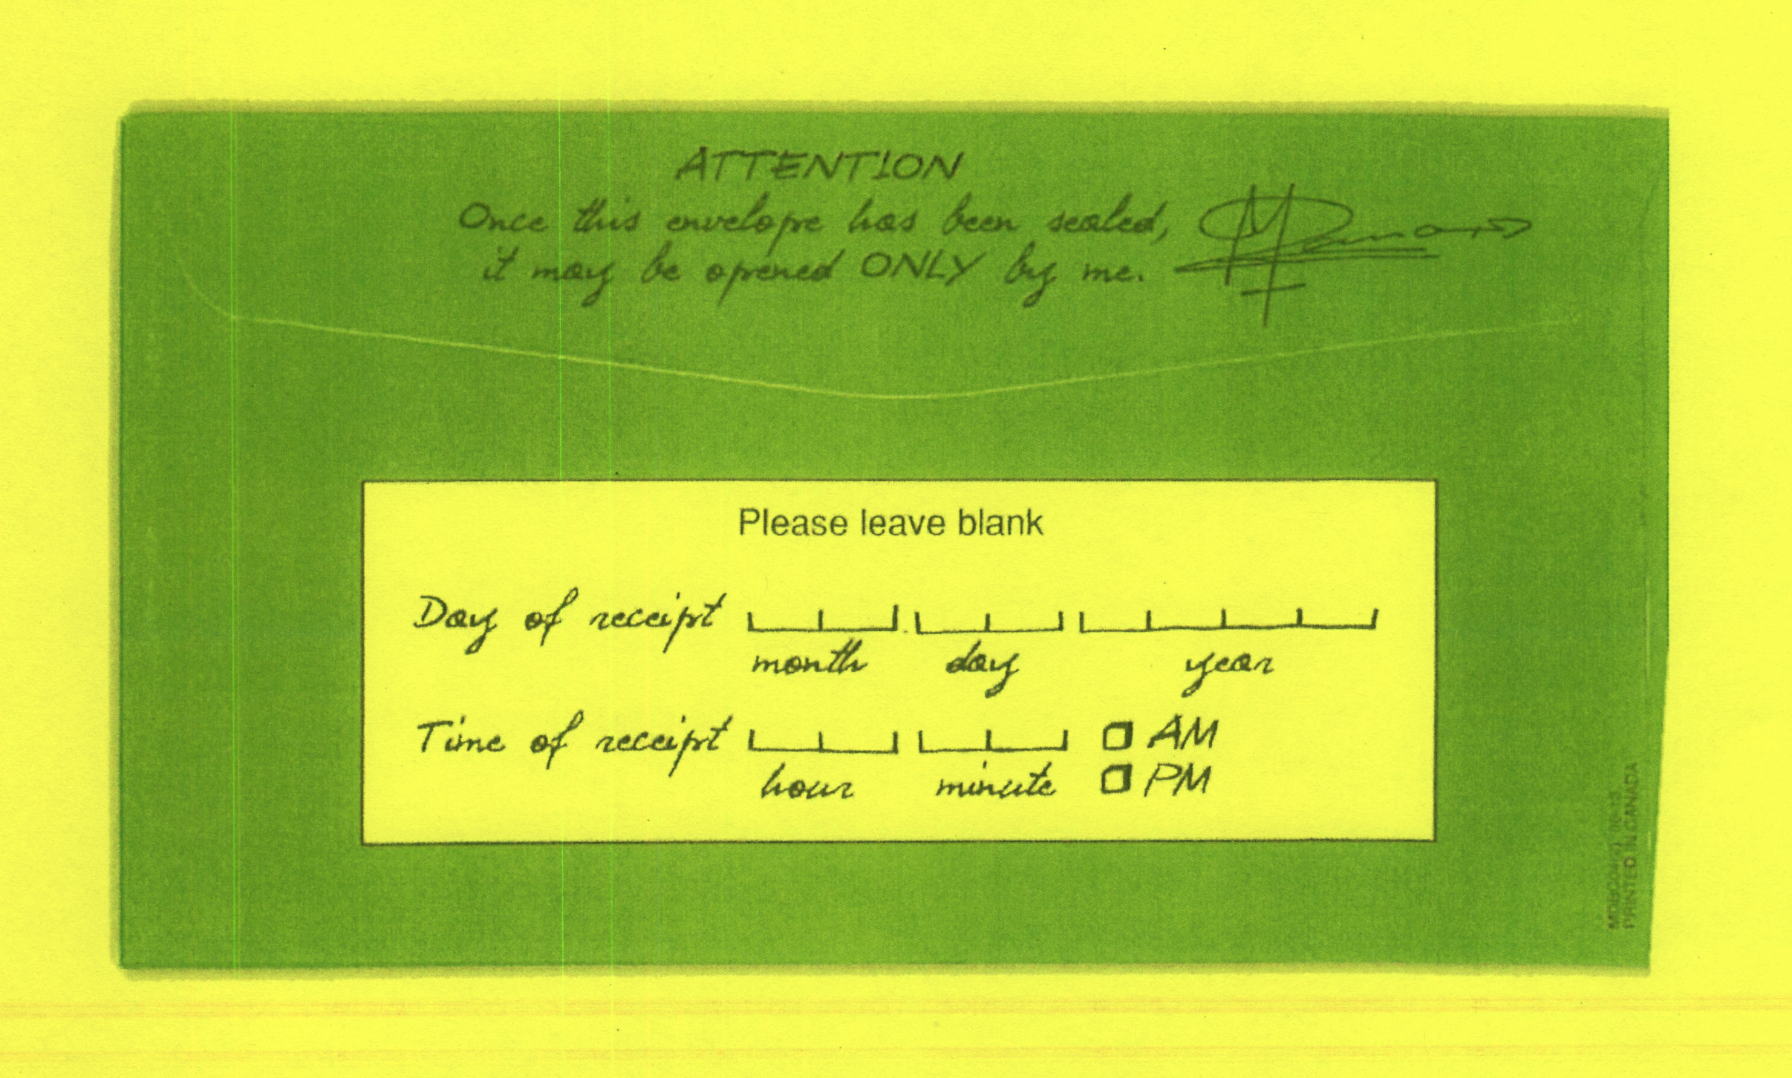 ATTENTION
Once this envelope has been sealed,
it may be opened ONLY by me.
Please leave blank
Day of receipt
month day year
Time of receipt AM
hour minute PM
PRINTED IN CANADA